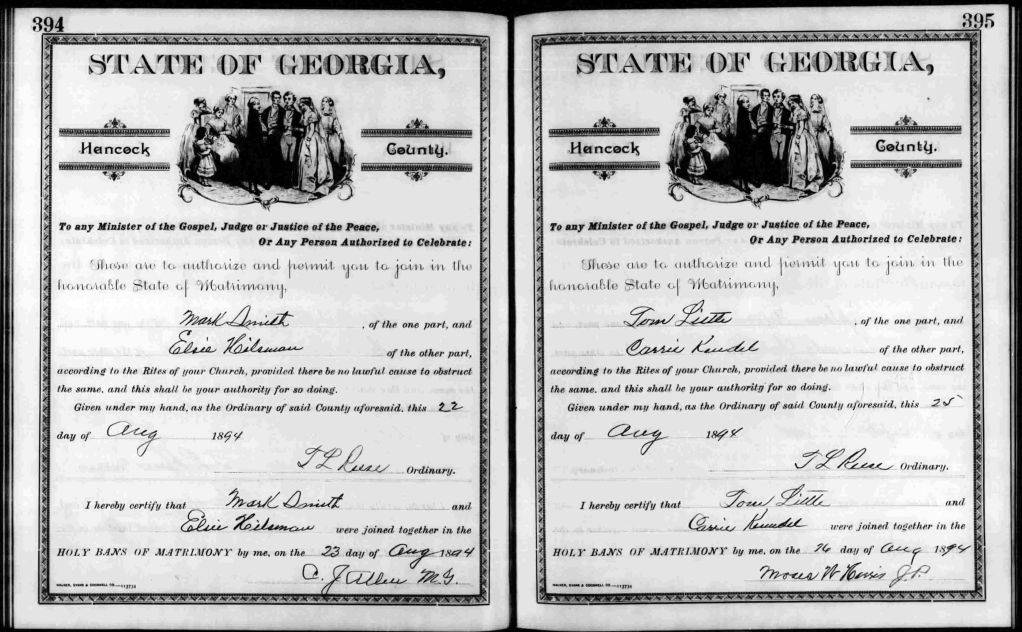 394
STATE OF GEORGIA,
Hancock County.
To any Minister of the Gospel, Judge or Justice of the Peace,
Or Any Person Authorized to Celebrate:
These are to authorize and permit you to join in the
honorable State of Matrimony,
Mark Smith , of the one part, and
Elsie Hilsman of the other part,
according to the Rites of your Church, provided there be no lawful cause to obstruct
the same, and this shall be your authority for so doing.
Given under my hand, as the Ordinary of said County aforesaid, this 22
day of Aug 1894
T L Reese Ordinary.
I hereby certify that Mark Smith and
Elsie Hilsman were joined together in the
HOLY BANS OF MATRIMONY by me, on the 23 day of Aug 1894
C. J. Allen M.G.
395
STATE OF GEORGIA,
Hancock County.
To any Minister of the Gospel, Judge or Justice of the Peace,
Or Any Person Authorized to Celebrate:
These are to authorize and permit you to join in the
honorable State of Matrimony,
Tom Little , of the one part, and
Carrie of the other part,
according to the Rites of your Church, provided there be no lawful cause to obstruct
the same, and this shall be your authority for so doing.
Given under my hand, as the Ordinary of said County aforesaid, this 25
day of Aug 1894
T L Reese Ordinary.
I hereby certify that Tom Little and
Carrie were joined together in the
HOLY BANS OF MATRIMONY by me, on the 26 day of Aug 1894
Moses W Harris J.P.